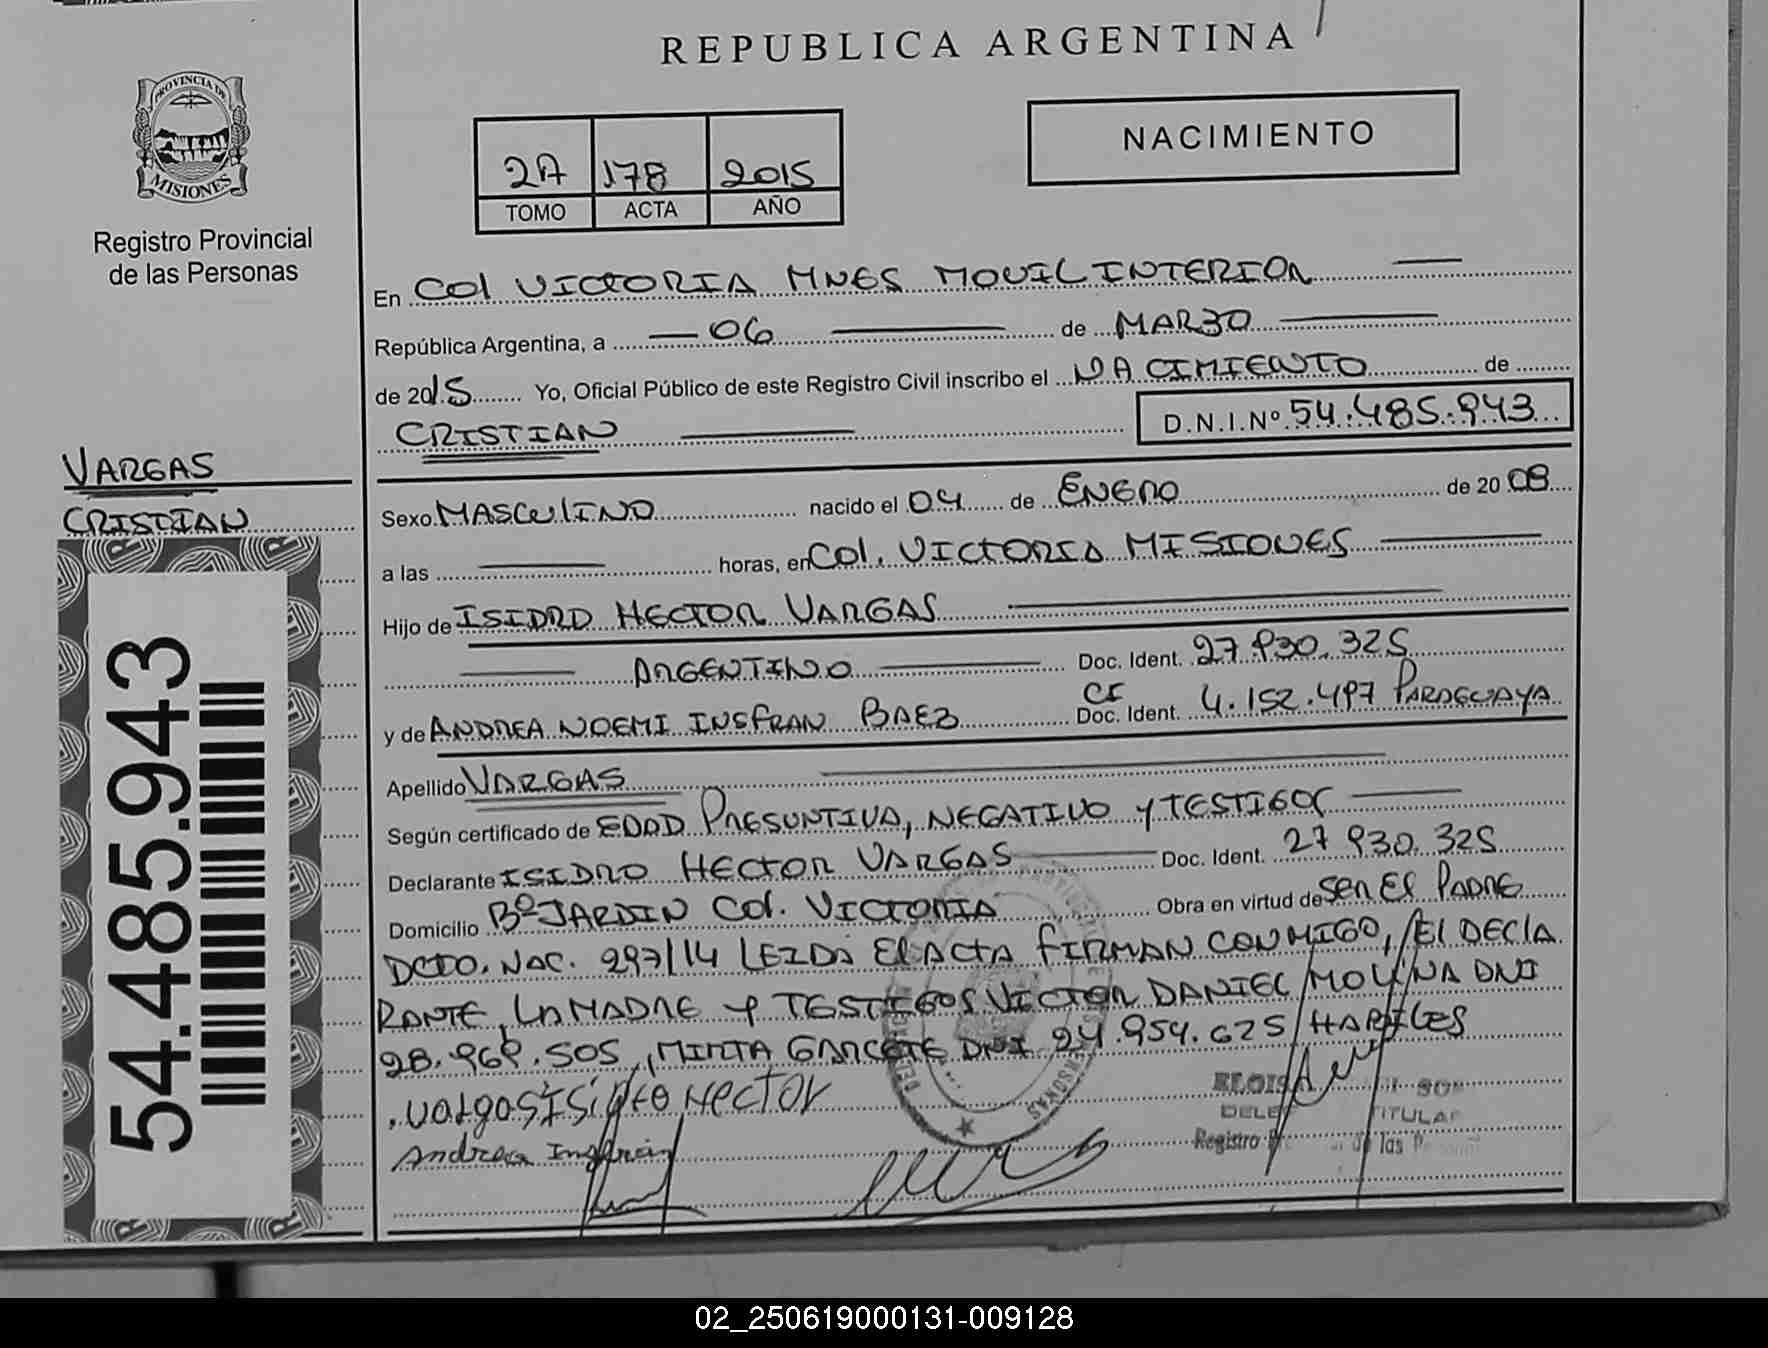 REPUBLICA ARGENTINA
PROVINCIA DE
MISIONES
Registro Provincial
de las Personas
NACIMIENTO
2A 178 2015
TOMO ACTA AÑO
En Col VICTORIA MNES MOVIL INTERIOR
República Argentina, a 06 de MARZO
de 2015 Yo, Oficial Público de este Registro Civil inscribo el NACIMIENTO de
CRISTIAN D.N.I.Nº 54.485.943
VARGAS
CRISTIAN
Sexo MASCULINO nacido el 04 de ENERO de 2008
a las horas, en Col. VICTORIA MISIONES
Hijo de ISIDRO HECTOR VARGAS
ARGENTINO Doc. Ident. 27.930.325
y de ANDREA NOEMI INSFRAN BAEZ CI Doc. Ident. 4.152.497 PARAGUAYA
Apellido VARGAS
Según certificado de EDAD PRESUNTIVA, NEGATIVO y TESTIGOS
Declarante ISIDRO HECTOR VARGAS Doc. Ident. 27 930.325
Domicilio Bº JARDIN Col. VICTORIA Obra en virtud de SER El PADRE
DCTO. NAC. 297/14 LEIDA El ACTA FIRMAN CONMIGO, El DECLA
RANTE, LA MADRE y TESTIGOS VICTOR DANIEL MOLINA DNI
28.969.505, MIRTA GARCETE DNI 24.954.625 HABILES
Vargas Isidro Hector
Andrea Insfran
DELE TITULAR
Registro de las
54.485.943
02_250619000131-009128